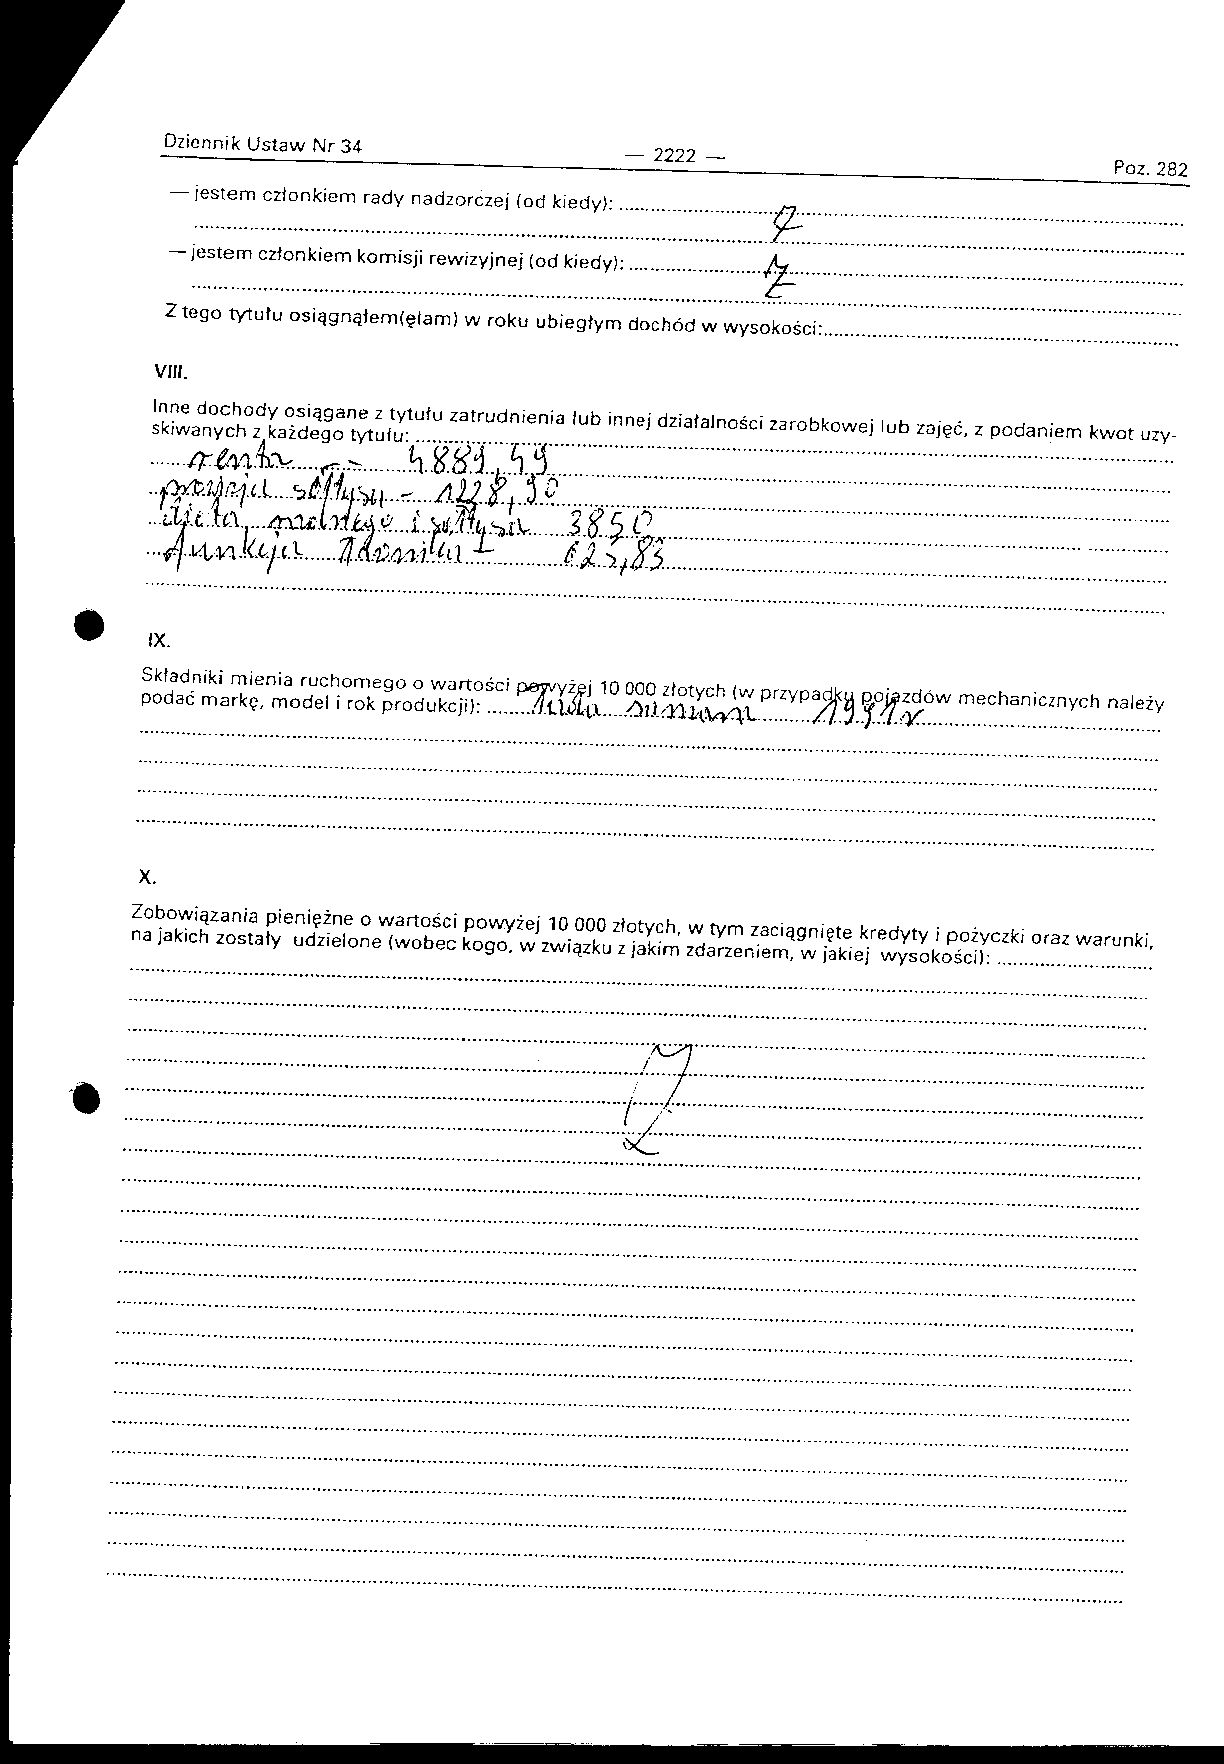 Dziennik Ustaw Nr 34 — 2222 — Poz. 282
— jestem członkiem rady nadzorczej (od kiedy):
— jestem członkiem komisji rewizyjnej (od kiedy):
Z tego tytułu osiągnąłem(ęłam) w roku ubiegłym dochód w wysokości:
VIII.
Inne dochody osiągane z tytułu zatrudnienia lub innej działalności zarobkowej lub zajęć, z podaniem kwot uzy-
skiwanych z każdego tytułu:
renta -- 4889,49
prowizja sołtysa - 1228,90
dieta radnego i sołtysa 3850
funkcja - 623,83
IX.
Składniki mienia ruchomego o wartości powyżej 10 000 złotych (w przypadku pojazdów mechanicznych należy
podać markę, model i rok produkcji): 1991r
X.
Zobowiązania pieniężne o wartości powyżej 10 000 złotych, w tym zaciągnięte kredyty i pożyczki oraz warunki,
na jakich zostały udzielone (wobec kogo, w związku z jakim zdarzeniem, w jakiej wysokości):